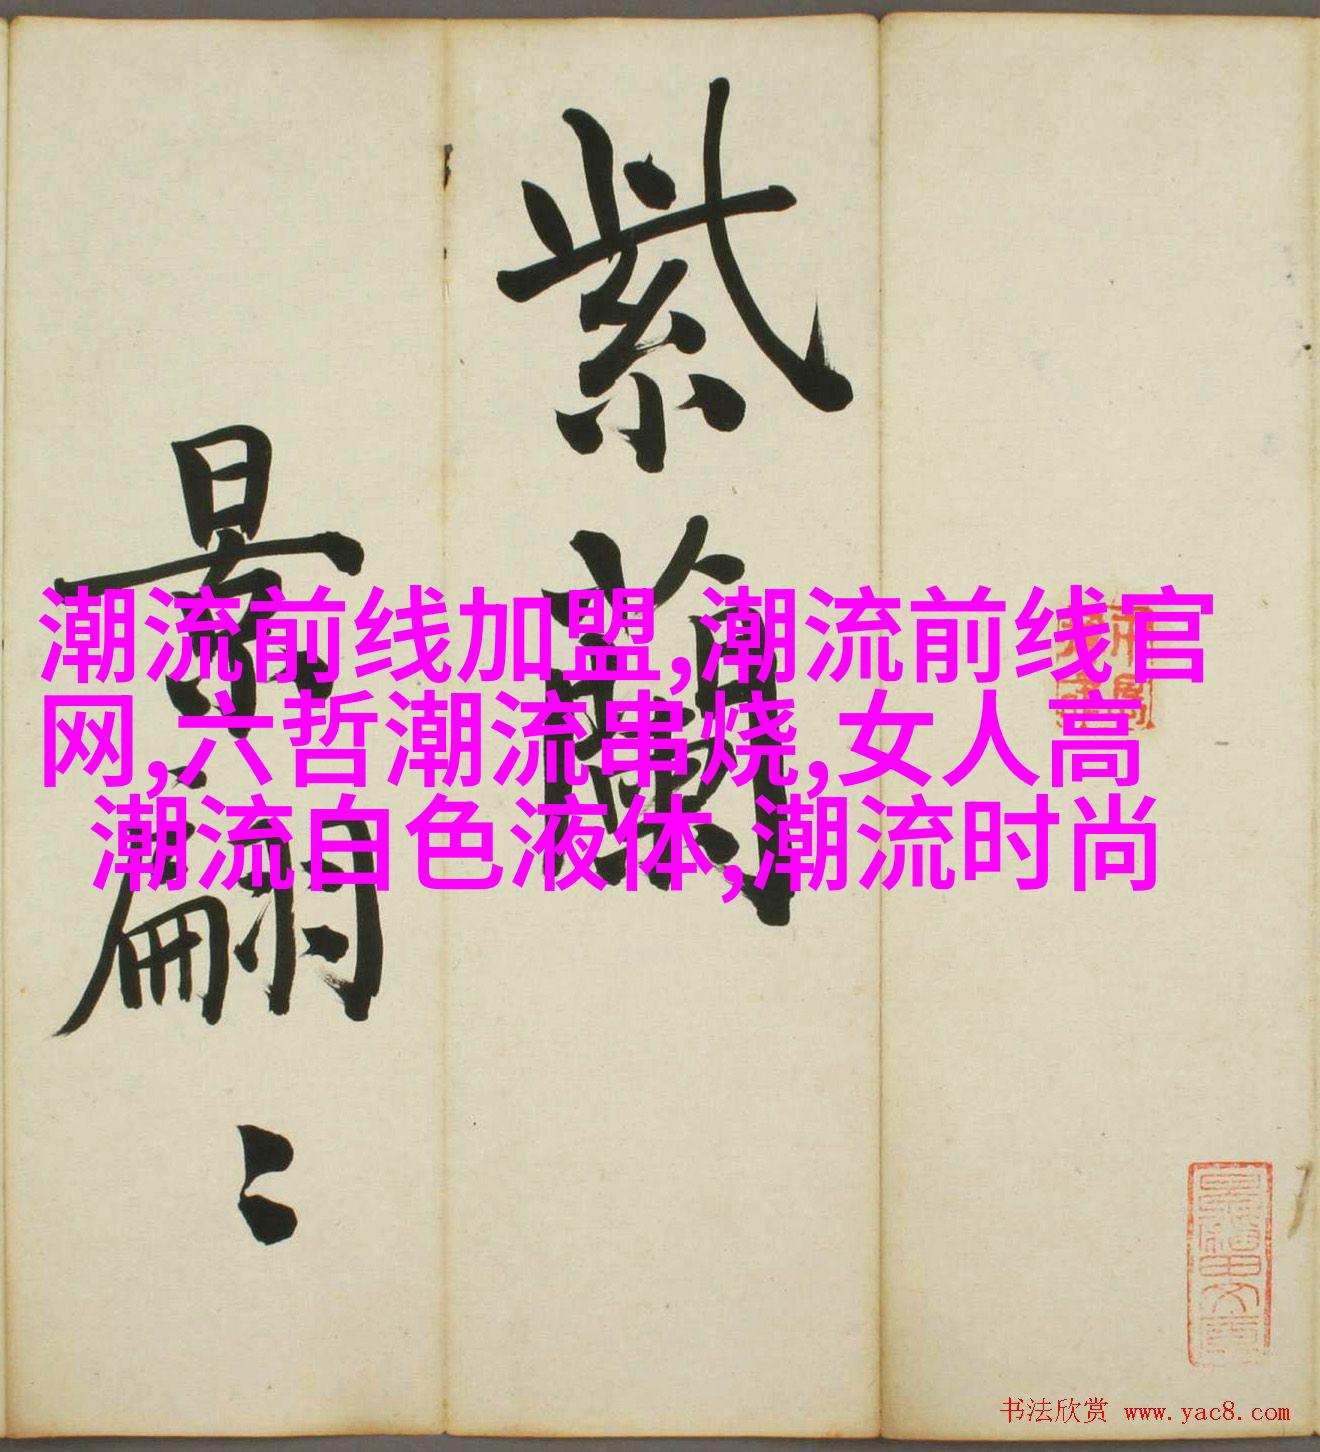 紫蘭
景翩〻
潮流前线加盟,潮流前线官
网,六哲潮流串烧,女人高
潮流白色液体,潮流时尚
书法欣赏 www.yac8.com